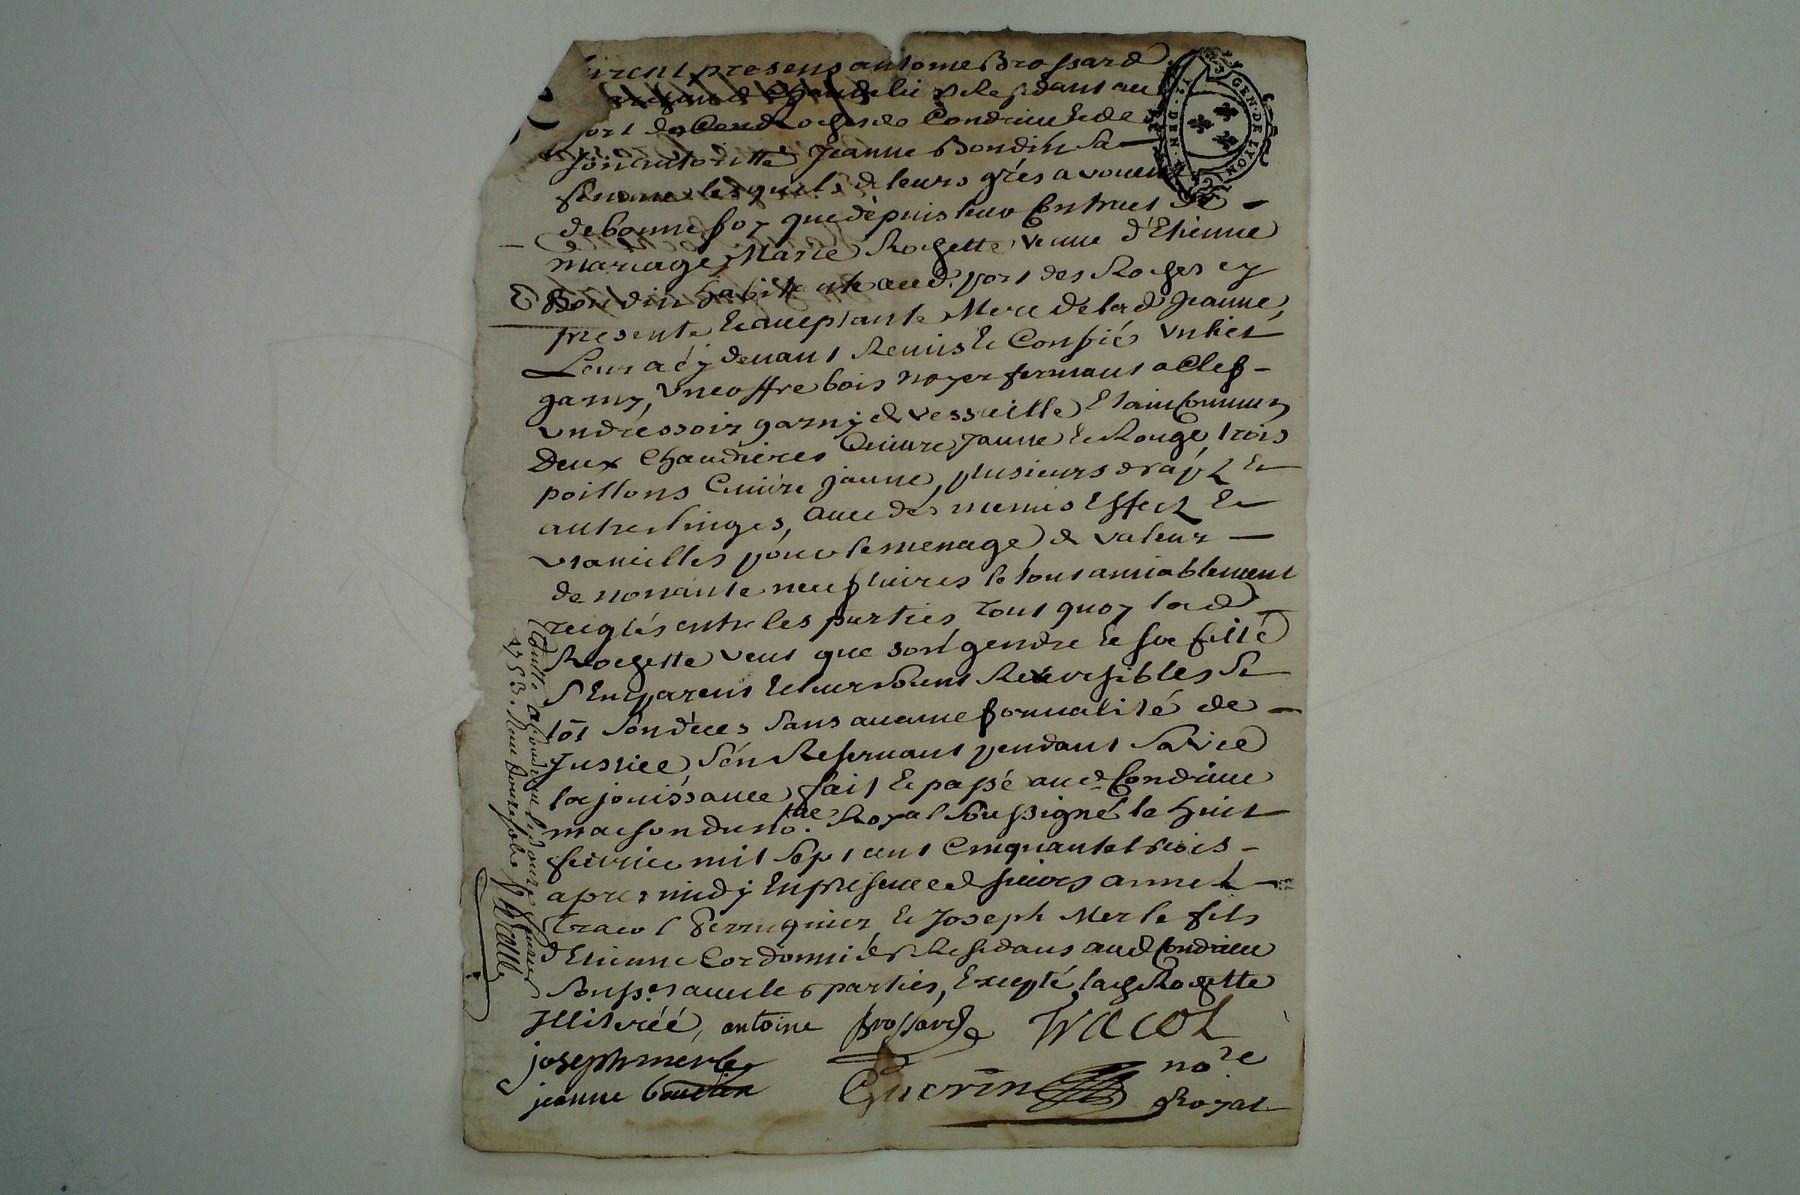 furent presens antoine Brossard
marchand Chandelier Residant au
port des Roches de Condrieu et de
son autoritté Jeanne Bondin sa
femme lesquels de leurs grés avouent
de bonne foy que depuis leur Contract de
mariage, Marie Rochette veuve d'Etienne
Bondin habittante aud. port des Roches cy
presente et acceptante Mere de lad. Jeanne,
Leur a cy devant Remis et Confiés un liet
garny, un coffre bois noyer fermant a Clef
un dressoir garny de vesseille Etain Commun
Deux Chaudieres Cuivre Jaune et Rouge, trois
poillons Cuivre jaune, plusieurs drapt et
autres linges, avec des menus Effect et
utancilles pour le menage de valeur
de nonante neuf livres le tout amiablement
reiglés entre les parties, Tout quoy lad.
Rochette veut que son gendre et sa fille
s'Emparent et leur soient Reversibles si
tôt son déces sans aucune formalité de
Justice, s'en Reservant pendant sa vie
la jouissance, fait et passé aud. Condrieu
maison du no.re Royal soussigné le huit
fevrier mil sept cent cinquante trois
apres midy En presence de sieurs annet
Tracol Perruquier et Joseph Merle fils
d'Etienne Cordonnier Residans aud. Condrieu
souss.és avec les parties, Excepté lad. Rochette
Illiterée, antoine Brossard Tracol
joseph merle
jeanne bondin Guerin no.re
Royal
GEN. DE LYON
Controllé a Condrieu le douze fevrier
1753. Reçu douze sols